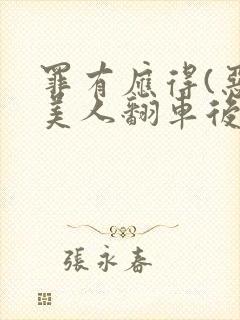 罪有應得(惡
美人翻車後
張永春